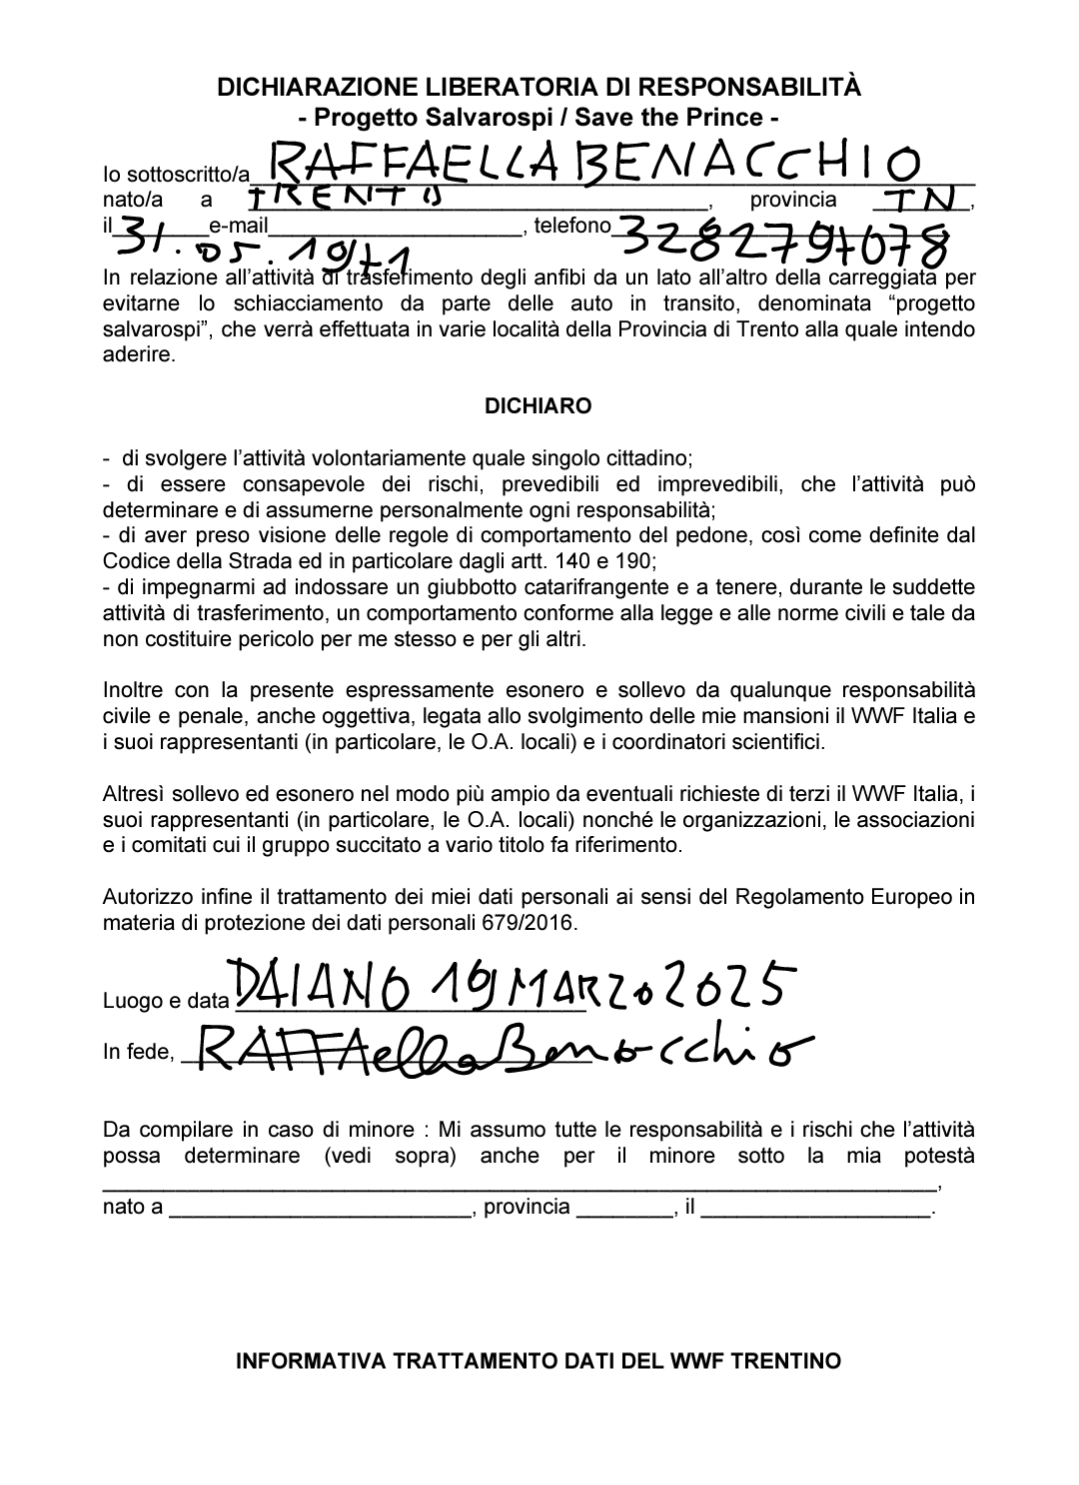 DICHIARAZIONE LIBERATORIA DI RESPONSABILITÀ
- Progetto Salvarospi / Save the Prince -
Io sottoscritto/a RAFFAELLA BENACCHIO
nato/a a TRENTO, provincia TN,
il 31.05.1971 e-mail____, telefono 3282797078
In relazione all’attività di trasferimento degli anfibi da un lato all’altro della carreggiata per
evitarne lo schiacciamento da parte delle auto in transito, denominata “progetto
salvarospi”, che verrà effettuata in varie località della Provincia di Trento alla quale intendo
aderire.
DICHIARO
- di svolgere l’attività volontariamente quale singolo cittadino;
- di essere consapevole dei rischi, prevedibili ed imprevedibili, che l’attività può
determinare e di assumerne personalmente ogni responsabilità;
- di aver preso visione delle regole di comportamento del pedone, così come definite dal
Codice della Strada ed in particolare dagli artt. 140 e 190;
- di impegnarmi ad indossare un giubbotto catarifrangente e a tenere, durante le suddette
attività di trasferimento, un comportamento conforme alla legge e alle norme civili e tale da
non costituire pericolo per me stesso e per gli altri.
Inoltre con la presente espressamente esonero e sollevo da qualunque responsabilità
civile e penale, anche oggettiva, legata allo svolgimento delle mie mansioni il WWF Italia e
i suoi rappresentanti (in particolare, le O.A. locali) e i coordinatori scientifici.
Altresì sollevo ed esonero nel modo più ampio da eventuali richieste di terzi il WWF Italia, i
suoi rappresentanti (in particolare, le O.A. locali) nonché le organizzazioni, le associazioni
e i comitati cui il gruppo succitato a vario titolo fa riferimento.
Autorizzo infine il trattamento dei miei dati personali ai sensi del Regolamento Europeo in
materia di protezione dei dati personali 679/2016.
Luogo e data DAIANO 19 MARZO 2025
In fede, RAFFAella Benacchio
Da compilare in caso di minore : Mi assumo tutte le responsabilità e i rischi che l’attività
possa determinare (vedi sopra) anche per il minore sotto la mia potestà
____,
nato a ____, provincia ____, il ____.
INFORMATIVA TRATTAMENTO DATI DEL WWF TRENTINO